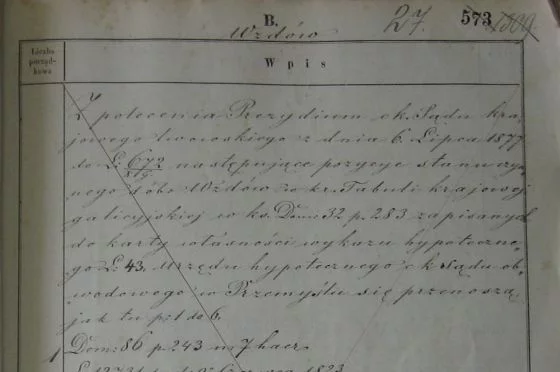 B.
27.
573
Wzdów
Liczba
porząd-
kowa
Wpis
Z polecenia Prezydium ck. Sądu kra,
jowego lwowskiego z dnia 6. Lipca 1877
do L: 672 następujące pozycye stanu czyn,
nego dóbr Wzdów w kr. Tabuli krajowej
galicyjskiej w ks. Dom: 32 p. 283 zapisanych
do karty własności wykazu hypoteczne,
go L: 43. Urzędu hypotecznego ck Sądu ob,
wodowego w Przemyślu się przenoszą,
jak tu p: 1 do 6.
1
Dom: 86 p. 243 n 7 haer.